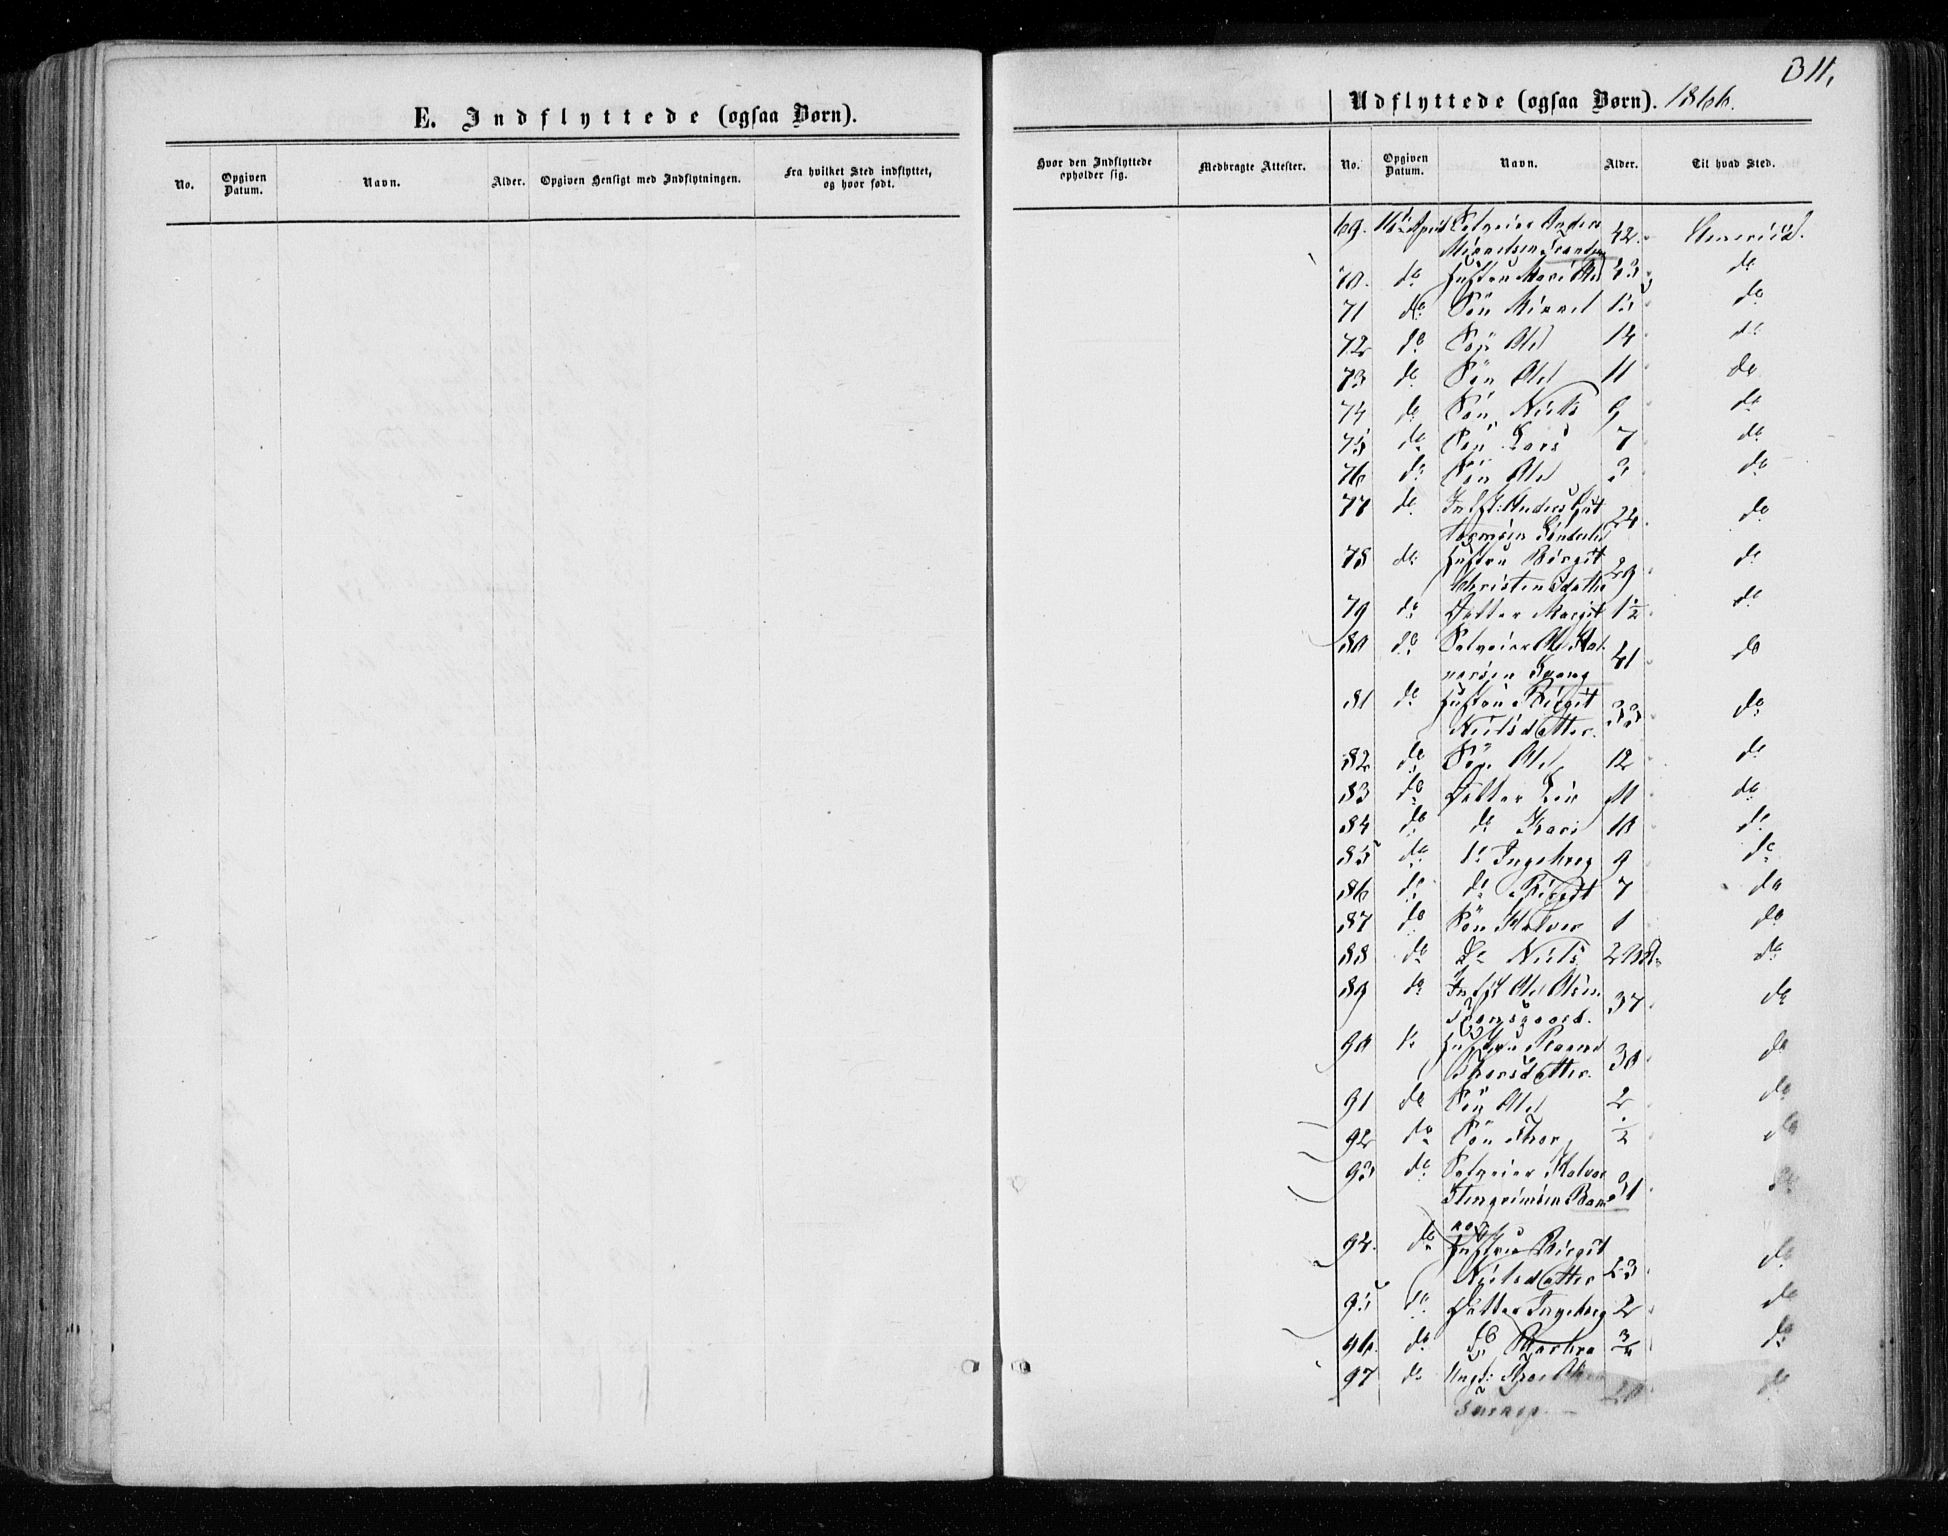 311.
E. Indflyttede (ogsaa Børn).
No.
Opgiven Datum.
Navn.
Alder.
Opgiven Hensigt med Indflytningen.
Fra hvilket Sted indflyttet, og hvor født.
Udflyttede (ogsaa Børn). 1866.
Hvor den Indflyttede opholder sig.
Medbragte Attester.
No.
Opgiven Datum.
Navn.
Alder.
Til hvad Sted.
69. 16 April Selveier Anders 42.
70. do Hustru Mari
71 do Søn Mikkel 15 do
72 do Søn Ole 14 do
73 do Søn Ole 11 do
74 do Søn Niels 9 do
75 do Søn Lars 7 do
76 do Søn Ole 3 do
77 do Indst: Anders 24 do
78 do Hustru Birgit 29 do
Christensdatter
79 do Datter Margit 1½ do
80 do Selveier Ole Hal- 41 do
vorsen
81 do Hustru Birgit 33 do
Nielsdatter.
82 do Søn Ole 12 do
83 do Datter 11 do
84 do do Kari 10 do
85 do do Ingebreg 9 do
86 do do Birgit 7 do
87 do Søn Halvor 1 do
88 do do Niels do
89 do Indst Ole Olsen 37 do
90 do Hustru 30 do
Thorsdatter.
91 do Søn Ole 2 do
92 do Søn Thor ½ do
93 do Selveier Halvor 31 do
94. do Hustru Birgit 23 do
Nielsdatter
95 do Datter Ingebreg 2 do
96. do do Barbra ¾ do
97 do Ungk: do